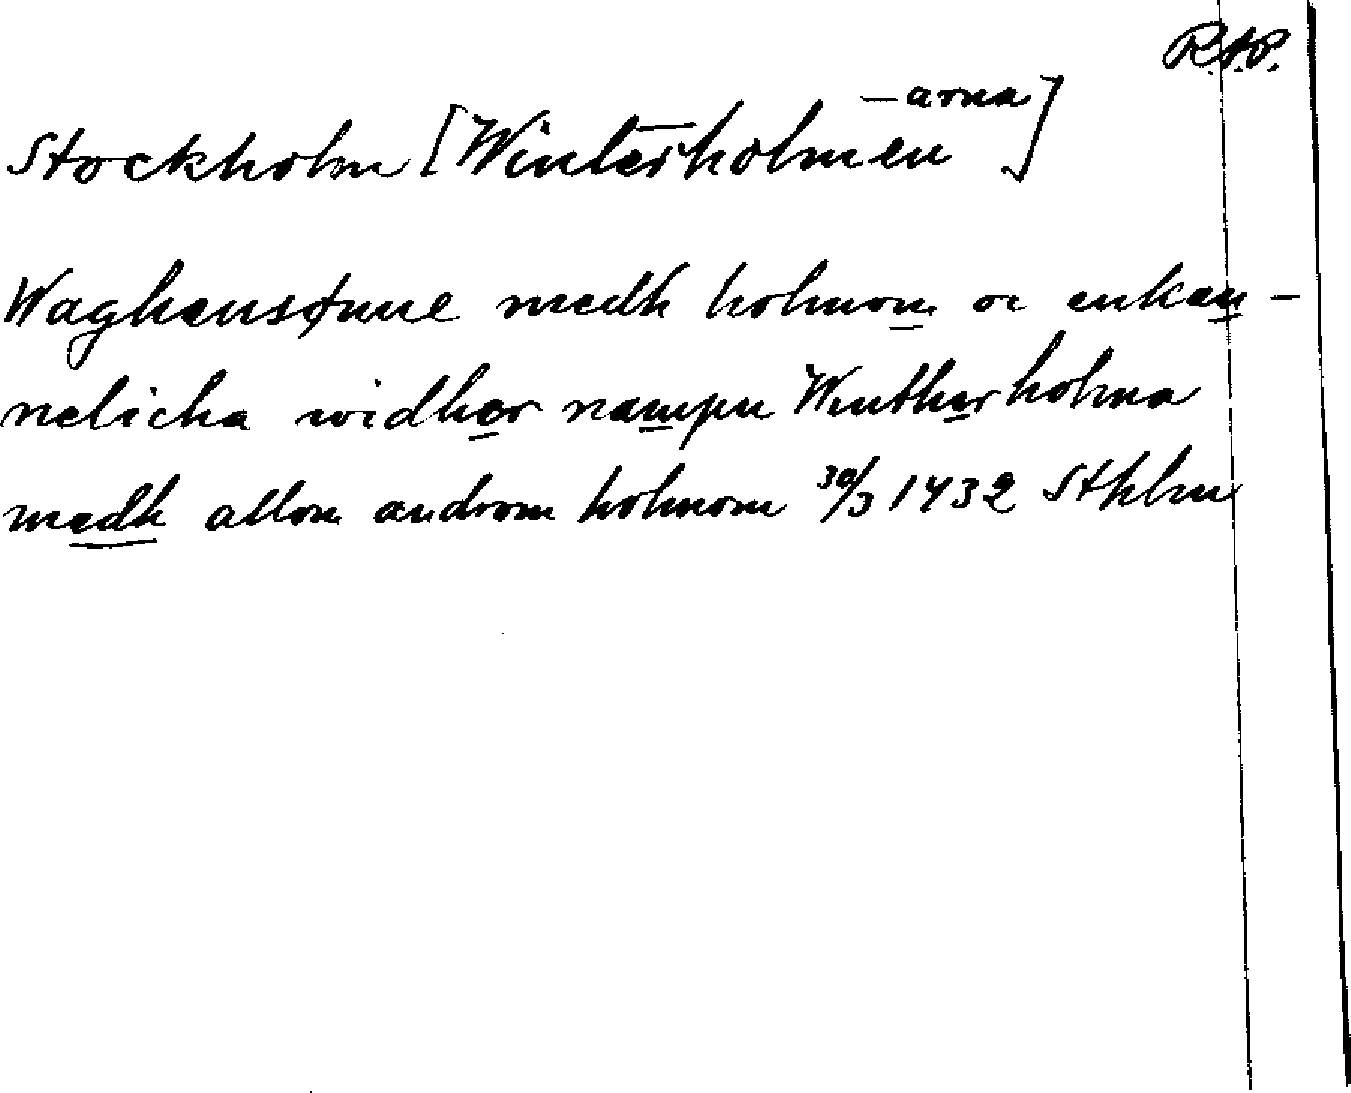 R.A.P.
Stockholm [Winterholmen -arna]
Waghensøune medh holmom oc enkan-
nelicha widher nampn Wintherholma
medh allom androm holmom 30/3 1432 Sthlm